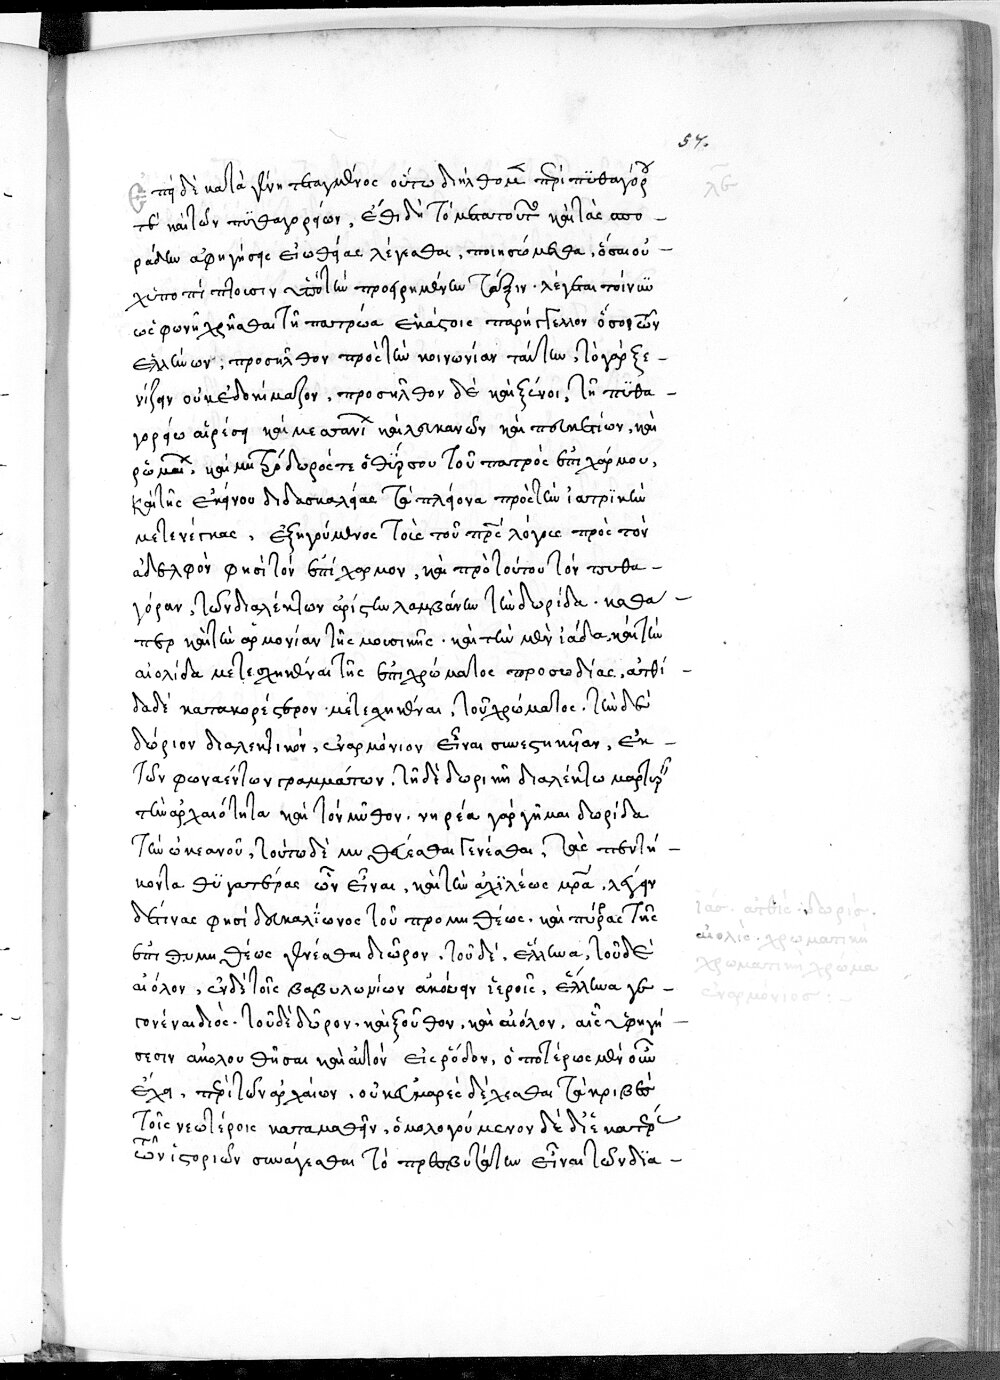 57.
λδ
Ἐπεὶ δὲ κατὰ γένη τεταγμένως οὕτω διήλθομεν περὶ πυθαγόρου
τὲ καὶ τῶν πυθαγορείων, ἔθι δὴ τὸ μετὰ τοῦτο καὶ τὰς σπο
ράδην ἀφηγήσεις εἰωθυίας λέγεσθαι, ποιησώμεθα, ὅσαι οὐ
χ ὑποπίπτουσιν ὑπὸ τὴν προειρημένην τάξιν· λέγεται τοίνυν
ὡς φωνῇ χρῆσθαι τῇ πατρώα ἑκάστοις παρήγγελλον ὅσοι τῶν
ἑλλήνων, προσῆλθον πρὸς τὴν κοινωνίαν ταύτην, τὸ γὰρ ξε
νίζειν οὐκ ἐδοκίμαζον, προσῆλθον δὲ καὶ ξένοι, τῇ πυθα
γορείω αἱρέσει καὶ μεσσαπίων καὶ λευκανῶν καὶ πευκετίων, καὶ
ῥωμαίων, καὶ μητρόδωρός τε ὁ θύρσου τοῦ πατρὸς ἐπιχάρμου,
καὶ τῆς ἐκείνου διδασκαλίας τὰ πλείονα πρὸς τὴν ἰατρικὴν
μετενέγκας, ἐξηγούμενος τοὺς τοῦ πατρὸς λόγους πρὸς τὸν
ἀδελφὸν φησὶ τὸν ἐπίχαρμον, καὶ πρὸ τούτου τὸν πυθα
γόραν, τῶν διαλέκτων ἀρίστην λαμβάνειν τὴν δωρίδα· καθά
περ καὶ τὴν ἁρμονίαν τῆς μουσικῆς· καὶ τὴν μὲν ἰάδα, καὶ τὴν
αἰολίδα μετεσχηκέναι τῆς ἐπιχρώματος προσωδίας, ἀτθί
δα δὲ κατακορέστερον· μετεσχηκέναι, τοῦ χρώματος. τὴν δὲ
δώριον διάλεκτον, ἐναρμόνιον εἶναι συνεστηκυῖαν, ἐκ
τῶν φωναέντων γραμμάτων. τῇ δὲ δωρικῇ διαλέκτω μαρτυρεῖν
τὴν ἀρχαιότητα καὶ τὸν μῦθον. νηρέα γὰρ γῆμαι δωρίδα
τὴν ὠκεανοῦ, τούτω δὲ μυθεύεσθαι γενέσθαι, τὰς πεντή
κοντα θυγατέρας ὧν εἶναι, καὶ τὴν ἀχιλέως μητέρα, λέγειν
δέ τινας φησὶ δευκαλίωνος τοῦ προμηθέως. καὶ πύρρας τῆς
ἐπιθυμηθέως γενέσθαι δῶρον, τοῦ δέ, ἕλληνα, τοῦ δὲ
αἰόλον, ἐν δὲ τοῖς βαβυλωνίων ἀκούειν ἱεροῖς, ἕλληνα γε
γονέναι διός. τοῦ δὲ δῶρον, καὶ ξοῦθον, καὶ αἰόλον, αἷς ὑφηγή
σεσιν ἀκολουθῆσαι καὶ αὐτὸν ἡσίοδον, ὁποτέρως μὲν οὖν
ἔχει, περὶ τῶν ἀρχαίων, οὐκ εὐμαρὲς δέχεσθαι τἀκριβὲς
τοῖς νεωτέροις καταμαθεῖν, ὁμολογούμενον δὲ δι' ἑκατέρας
τῶν ἱστοριῶν συνάγεσθαι τὸ πρεσβυτάτην εἶναι τῶν δια
ἰάς. ἀτθίς. δωρίς.
αἰολίς. χρωματικὴ
χρωματικὴ χρῶμα
ἐναρμόνιος: